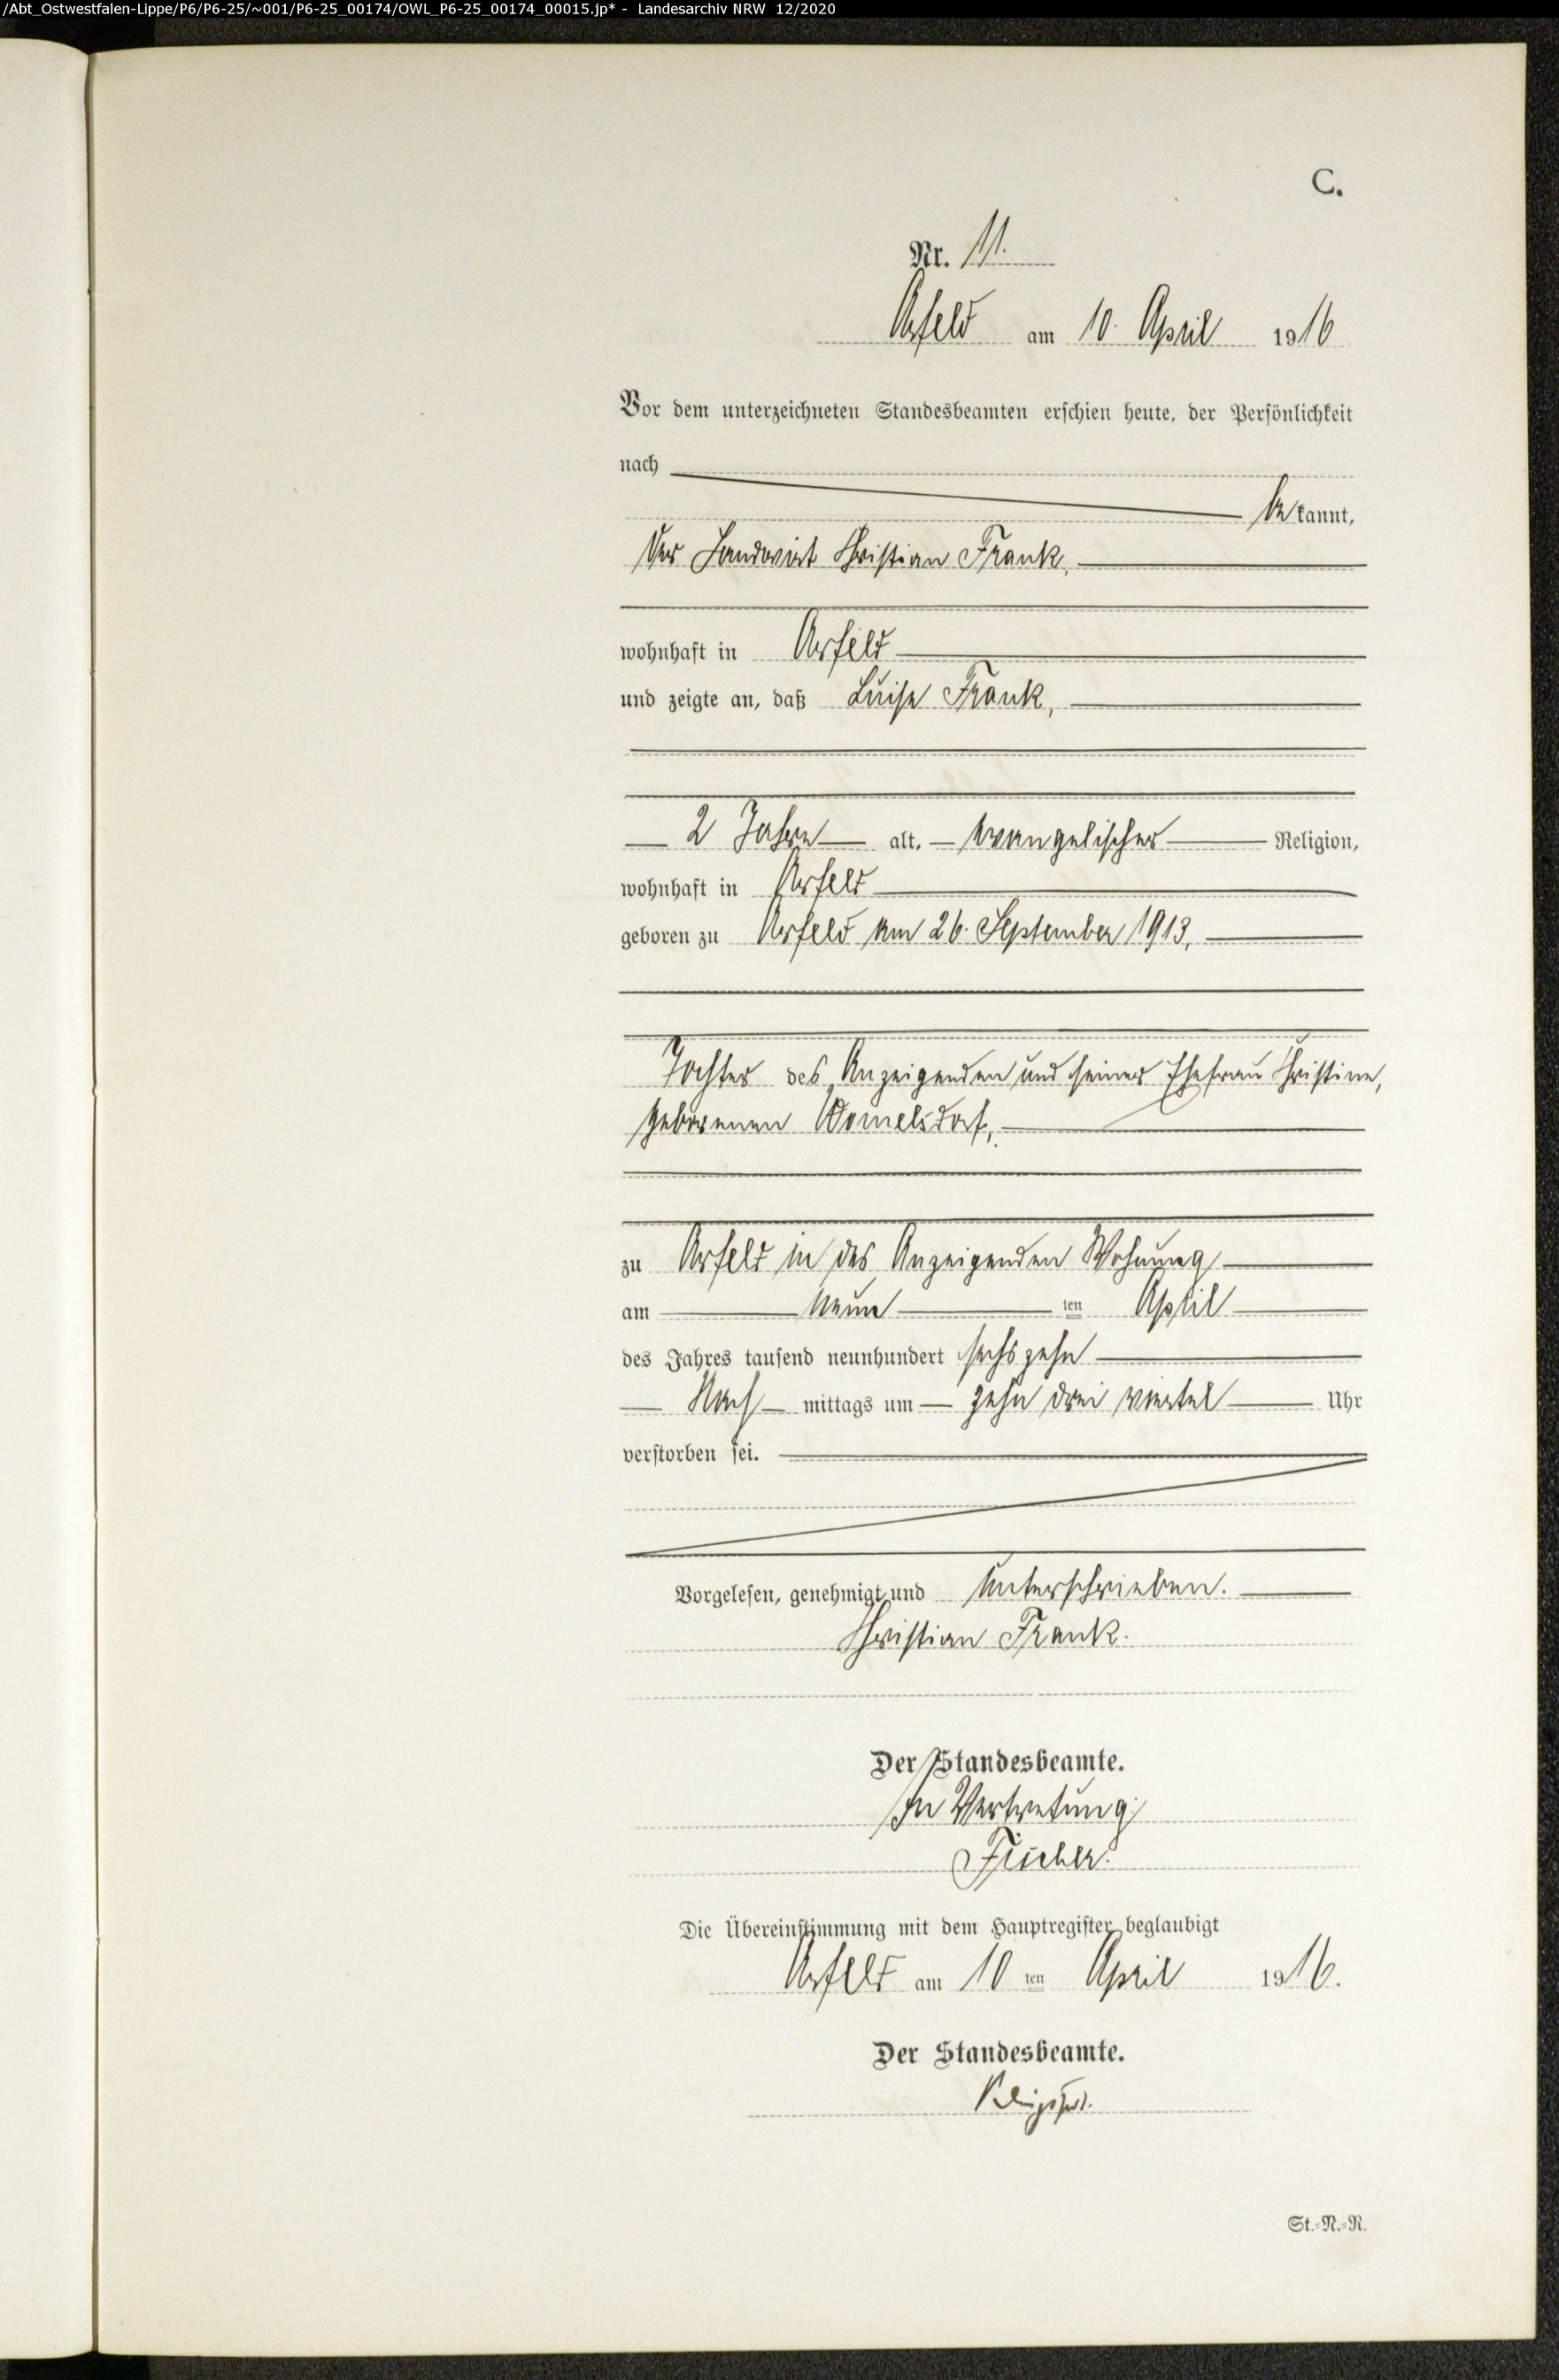 /Abt_Ostwestfalen-Lippe/P6/P6-25/~001/P6-25_00174/OWL_P6-25_00174_00015.jp* - Landesarchiv NRW 12/2020
C.
Nr. 11.
Arfeld am 10. April 1916
Vor dem unterzeichneten Standesbeamten erschien heute, der Persönlichkeit
nach
bekannt,
der Landwirt Christian Frank,
wohnhaft in Arfeld
und zeigte an, daß Luise Frank,
2 Jahre alt, evangelischer Religion,
wohnhaft in Arfeld
geboren zu Arfeld am 26. September 1913,
Tochter des Anzeigenden und seiner Ehefrau Christine,
geborenen Womelsdorf,
zu Arfeld in des Anzeigenden Wohnung
am neun ten April
des Jahres tausend neunhundert sechszehn
Nach mittags um zehn drei viertel Uhr
verstorben sei.
Vorgelesen, genehmigt und unterschrieben.
Christian Frank.
Der Standesbeamte.
In Vertretung:
Fischer.
Die Übereinstimmung mit dem Hauptregister beglaubigt
Arfeld am 10 ten April 1916.
Der Standesbeamte.
St.-N.-R.